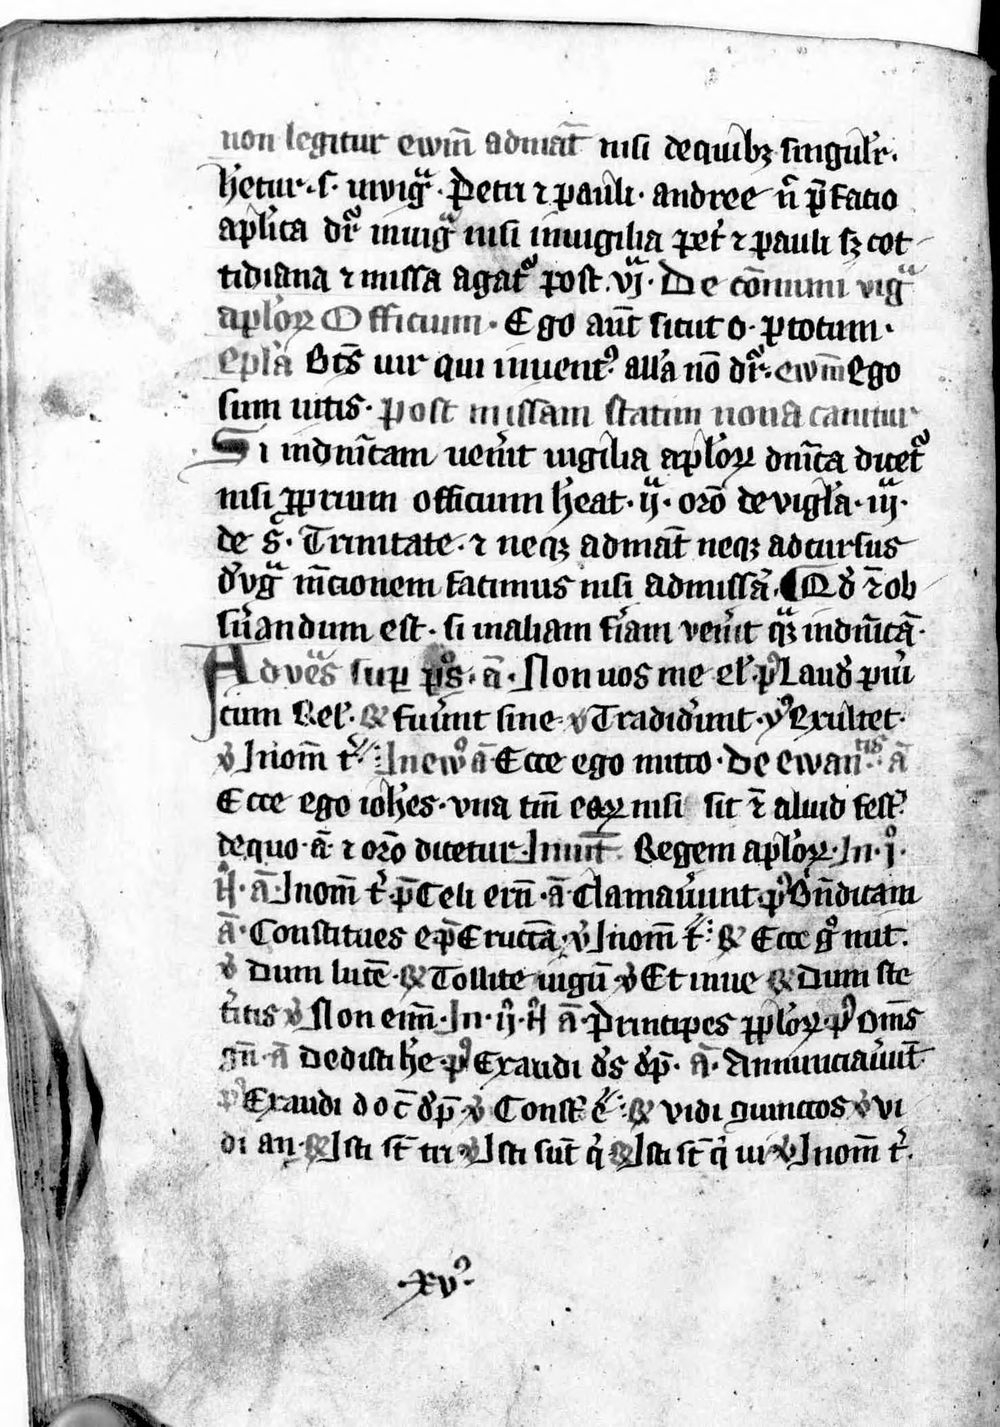 non legitur ewm̄ admat̄ nisi de quibꝫ singulr̄.
h̄etur. s. in vigᷓ. Petri ⁊ pauli. andree n̄ p̄facio
ap̄lica dr̄ in uigᷓ nisi in uigilia pet̓ ⁊ pauli sꝫ cot
tidiana ⁊ missa agat᷑ post. vjᷓ. De cōmuni vigᷓ
ap̄loꝝ Officium. Ego aut̄ sicut o. p totum.
Ep̄la Bt̄s uir qui inuent᷒ all̄a nō dr̄. ewm̄ Ego
sum uitis. post missam statim nona cantur
Si in dn̄icam uen̓it uigilia ap̄loꝝ dn̄ica dicet᷑
nisi ꝓprium officium h̄eat. ijᷓ. orō de vigl̓a. iijᷓ.
de s̄. Trinitate. ⁊ neqꝫ ad mat̄ neqꝫ ad cursus
d̓ vgᷓ m̄cionem facimus nisi ad missā. ¶ Qd̓ ⁊ ob
s̓uandum est. si in aliam f̓iam ven̓it qᷓꝫ in dn̄icā.
Ad vēs sup ps̄. ā. Non uos me el̓. p̓ Laud̓ pri᷑
cum Rel̓. ℟ fuer̄nt sine ℣ Tradid̓unt. y᷒ Exultet.
℣ In om̄ t̓. In ewᷓ ā Ecce ego mitto. De ewan̄tis. ā
Ecce ego ioh̄es. vna tm̄ eaꝝ nisi sit ⁊ aliud fest᷒
de quo. ā. ⁊ orō dicetur. Inuit̄. Regem ap̄loꝝ. In. j᷒.
N̄. ā. In om̄ t̓. p̄ Celi en̄. ā Clamauer̄unt. p᷒ Bn̄dicam
ā. Constitues e. p̄ Eructā. ℣ In om̄ t̓. ℟ Ecce g᷒ mit.
℣ Dum lucē. ℟ Tollite iugū ℣ Et inue ℟ Dum ste
t̓itis ℣ Non enim̄. In. ij. N̄ ā. Principes ꝓp̄loꝝ. p᷒ Om̄s
gn̄. ā Dedisti h̄e. p᷒ Exaudi d̄s dp̄. ā. Annunciauer̄t
p᷒ Exaudi d o c̄ dp̄. ℣ Const̄ e. ℟ vidi quinctos ℣ vi
di an. ℟ Isti st̄ tri ℣ Isti sut̄ q̓ ℟ Isti st̄ q̓ ui ℣ In om̄ t̓.
.xv᷒.